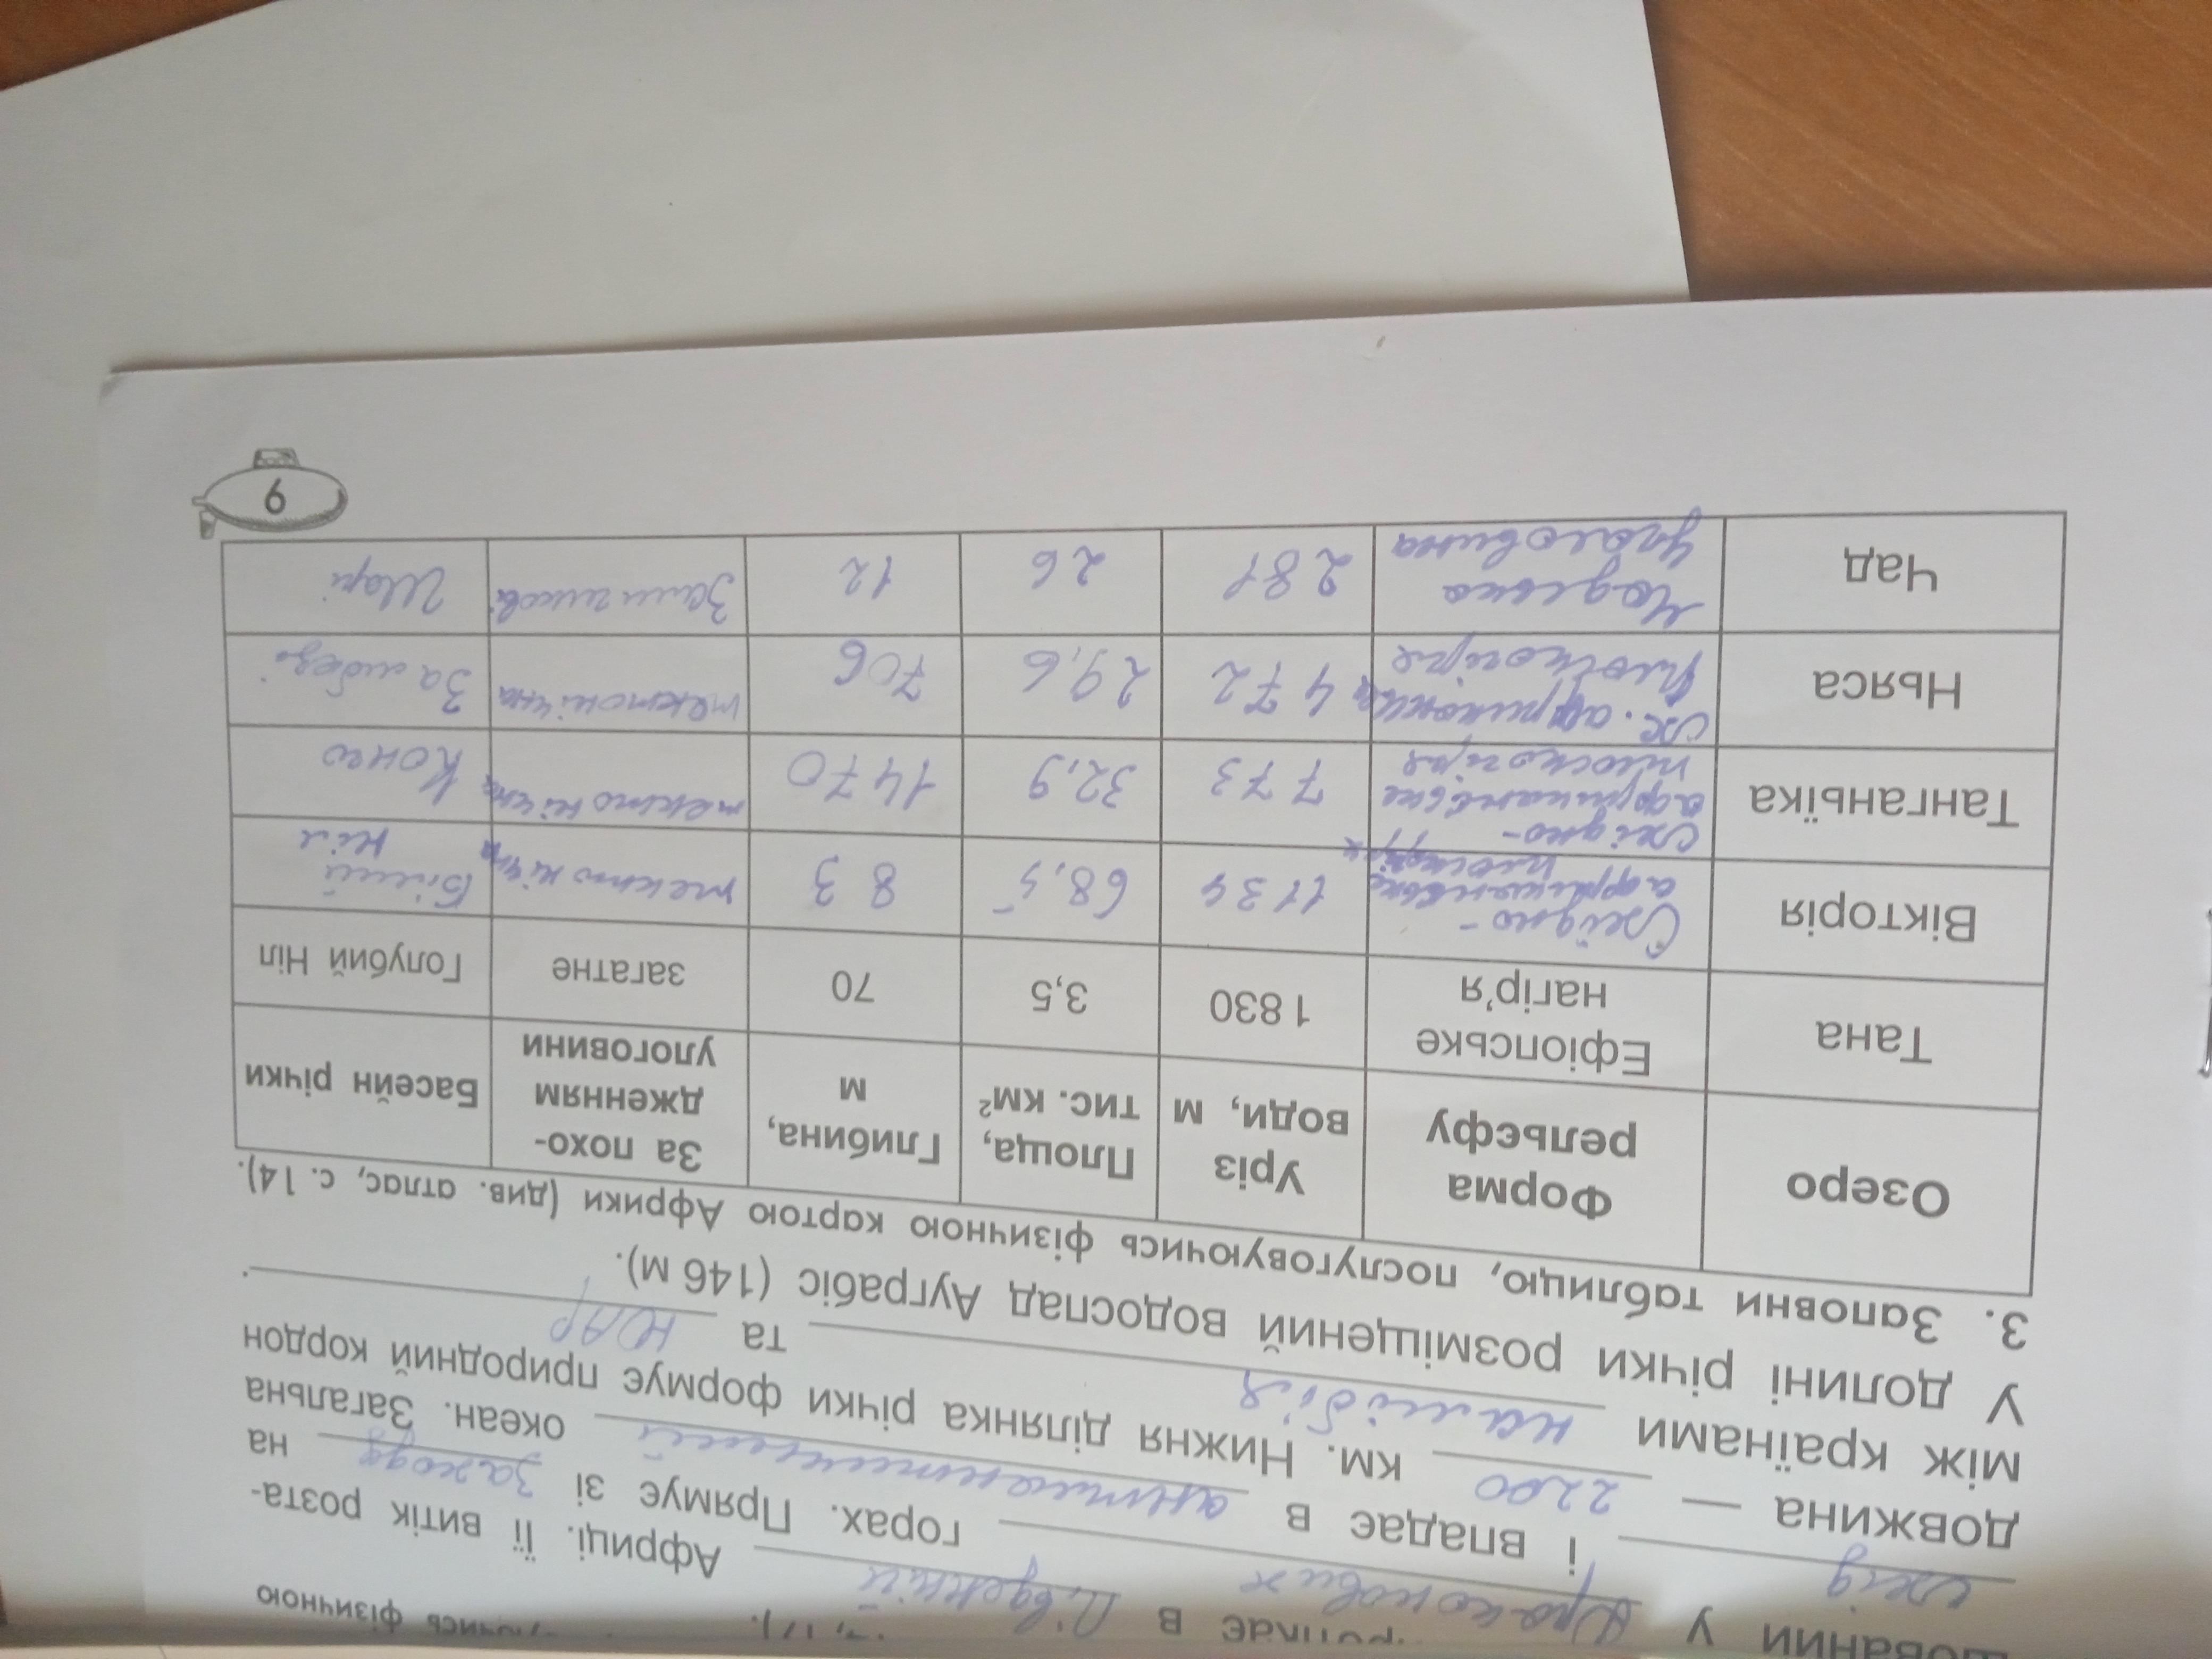 фізичною
шований у Драконових
в Південній Африці. Її витік розта-
горах. Прямує зі заходу на
схід і впадає в атлантичний океан. Загальна
довжина — 2200 км. Нижня ділянка річки формує природний кордон
між країнами намібія та ЮАР.
У долині річки розміщений водоспад Ауграбіс (146 м).
3. Заповни таблицю, послуговуючись фізичною картою Африки (див. атлас, с. 14).
Озеро Форма рельєфу Уріз води, м Площа, тис. км² Глибина, м За похо-дженням улоговини Басейн річки
Тана Ефіопське нагір'я 1 830 3,5 70 загатне Голубий Ніл
Вікторія Східно-африканське плоскогір'я 1134 68,5 83 тектонічна Білий Ніл
Танганьїка Східно-африканське плоскогіря 773 32,9 1470 тектонічна Конго
Ньяса Сх. африканське плоскогіре 472 29,6 706 тектонічна Замбезі
Чад Чадська улоговина 281 26 12 Залишкова Шарі
9